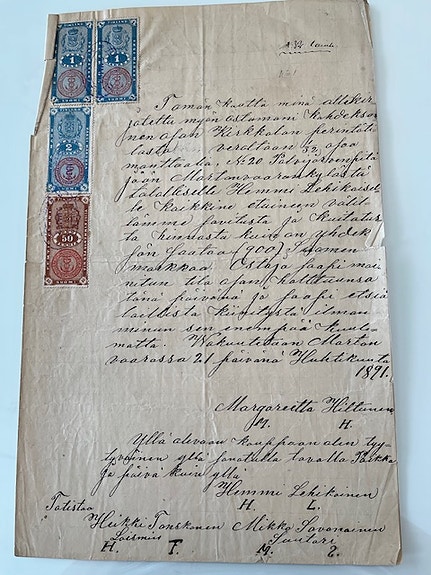 FINLAND
SUOMI
1
1
2
50
Taman kautta minä allekir
jotettu myön ostamani kahdekso
nen ajan Kirkkolan perintöta
losta verollaan 32 ajaa
manttaalia, No 20
jään Martonvaaran kylästä
talolliselle Hemmi Lehikoisel
le kaikkine etuineen välil
lämme sovitusta ja kuitatus
ta hinnasta kuin on yhdek
sän sataa (900) Suomen
markkaa. Ostaja saapi mai
nitun tila ajan halttuunsa
tänä päivänä ja saapi etsiä
laillista kiinitystä ilman
minun sen enempää kuule
matta. Vakuutetaan Marton
vaarassa 21 päivänä Huhtikuuta
1891.
Margareetta Hiltunen
M. H.
Yllä olevaan kauppaan olen tyy
tyväinen yllä sanotulla tavalla Paikka
ja päivä kuin yllä
Hemmi Lehikoinen
H. L.
Totistaa
Heikki Tanskanen Mikko Savonainen
H. T. M. S.